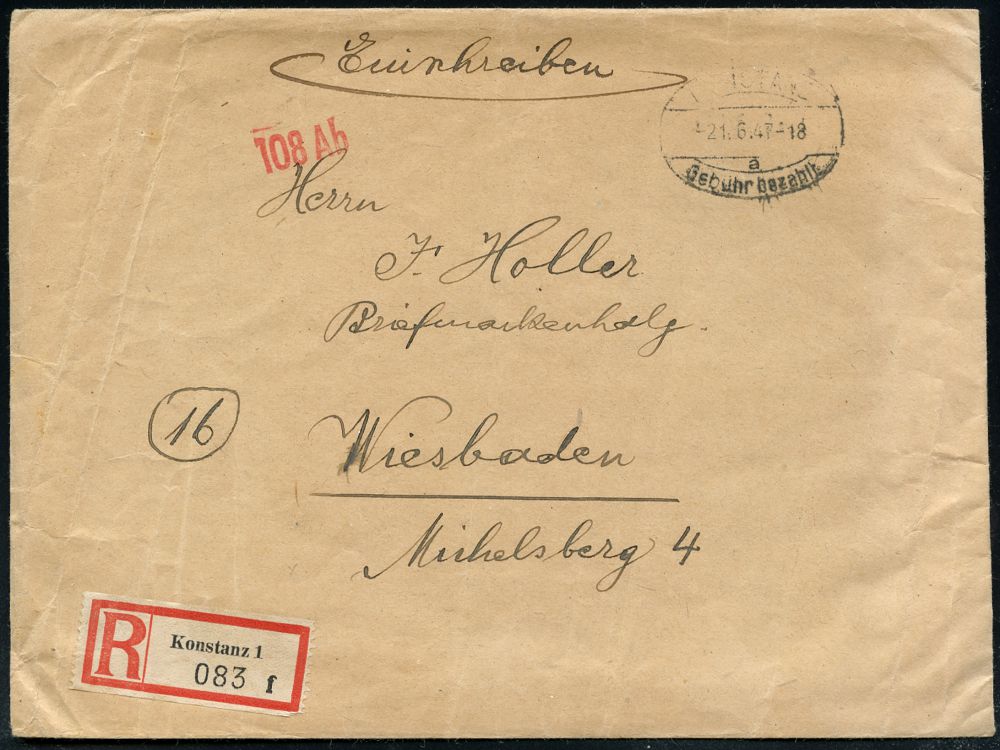 Einschreiben
21.6.47-18
a
Gebühr bezahlt
108 Ab
Herrn
F. Holler
Briefmarkenhdlg.
16
Wiesbaden
Michelsberg 4
R
Konstanz 1
083 f